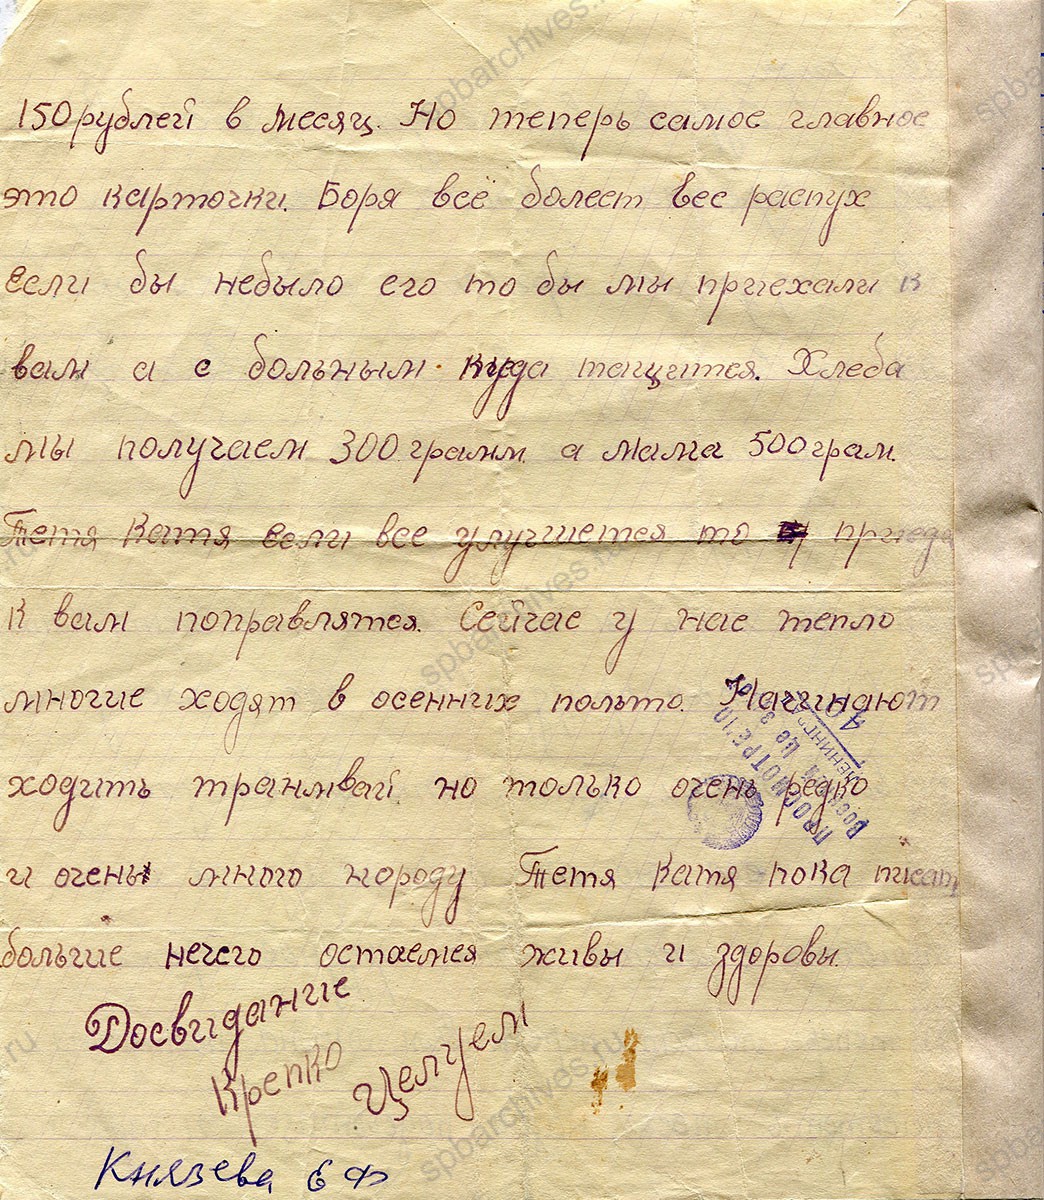 150 рублей в месяц. Но теперь самое главное
это карточки. Боря всё болеет вес распух
если бы небыло его то бы мы приехали к
вам а с больным куда тащится. Хлеба
мы получаем 300 грамм. а мама 500 грам.
Тетя Катя если все улучшется то приеда
к вам поправлятся. Сейчас у нас тепло
многие ходят в осенних польто. Начинают
ходить транмвай но только очень редко
и очень много народу Тетя Катя пока писат
больше нечего остаемся живы и здоровы.
Досвидание
Крепко Целуем
Князева Е Ф
ПРОСМОТРЕНО
spbarchives.ru